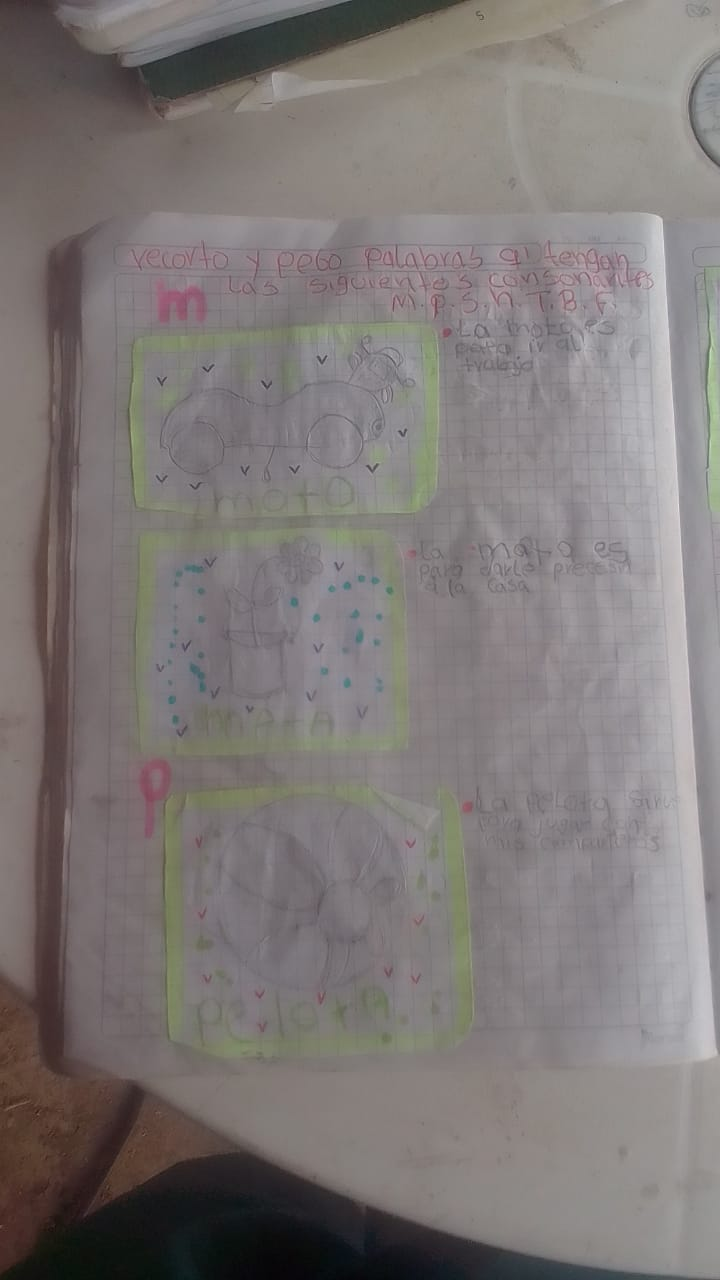 recorto y pego palabras q' tengan
las siguientes consonantes
M.P.S.N.T.B.F.
m
• La moto es
para ir al
trabajo
moto
• La mata es
para darle presesn
a la casa
matA
P
• La pelota sirve
para jugar con
mis compañeros
pelotA